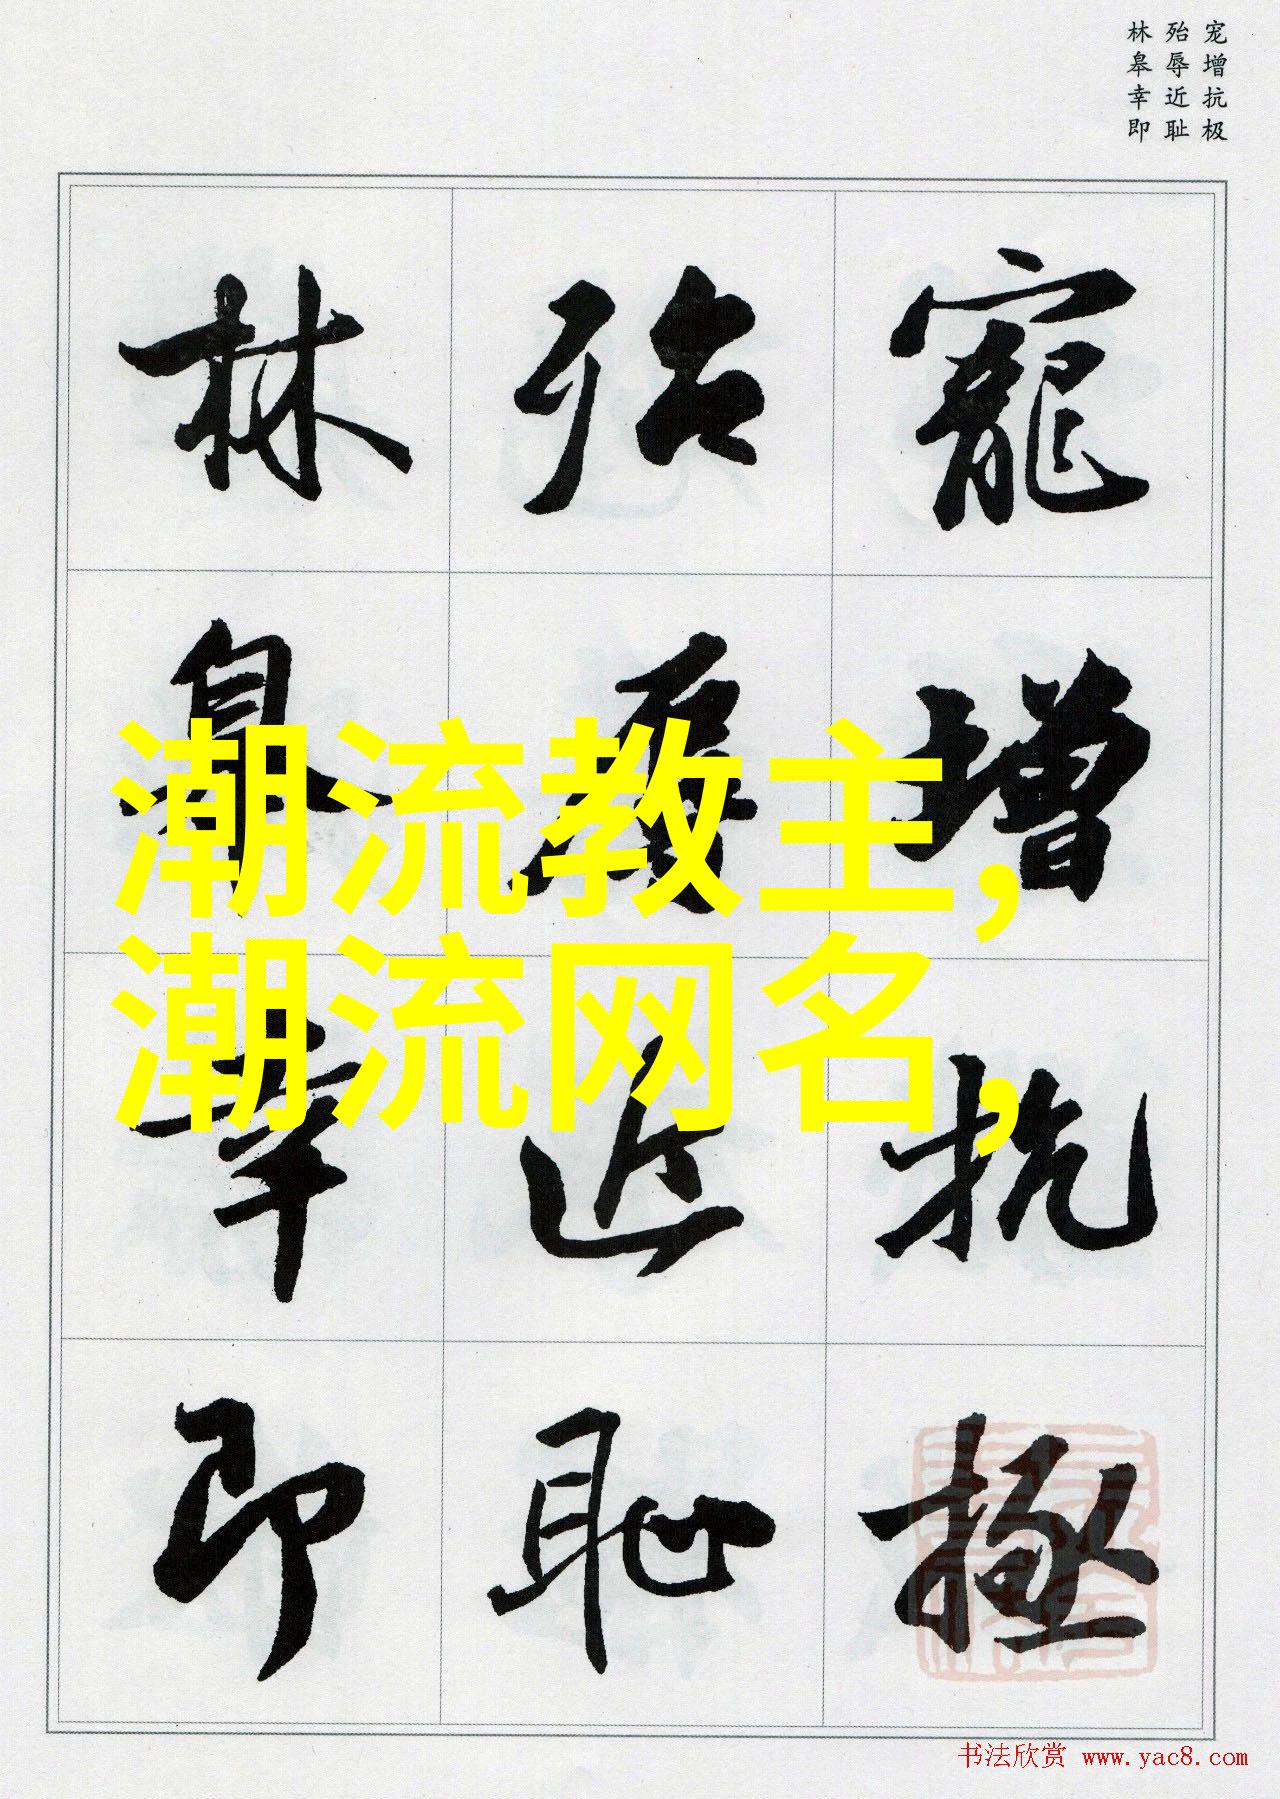 宠增抗极
殆辱近耻
林皋幸即
寵增抗極
殆辱近恥
林皋幸即
潮流教主,
潮流网名,
书法欣赏 www.yac8.com